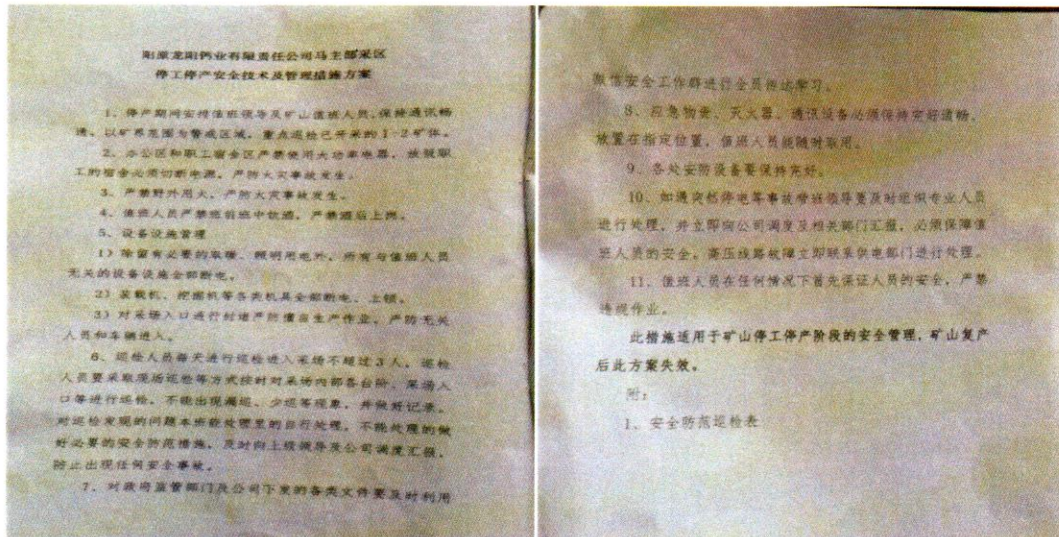 阳原龙阳钙业有限责任公司马主部采区
停工停产安全技术及管理措施方案
1、停产期间安排值班领导及矿山值班人员,保持通讯畅
通。以矿界范围为警戒区域,重点巡检已开采的1-2矿体。
2、办公区和职工宿舍区严禁使用大功率电器,放假职
工的宿舍必须切断电源,严防火灾事故发生。
3、严禁野外用火,严防火灾事故发生。
4、值班人员严禁班前班中饮酒,严禁酒后上岗。
5、设备设施管理
1)除留有必要的取暖、照明用电外,所有与值班人员
无关的设备设施全部断电。
2)装载机、挖掘机等各类机具全部断电、上锁。
3)对采场入口进行封堵严防擅自生产作业,严防无关
人员和车辆进入。
6、巡检人员每天进行巡检进入采场不超过3人,巡检
人员要采取现场巡检等方式按时对采场内部各台阶、采场入
口等进行巡检,不能出现漏巡、少巡等现象,并做好记录。
对巡检发现的问题本班能处理里的自行处理,不能处理的做
好必要的安全防范措施,及时向上级领导及公司调度汇报,
防止出现任何安全事故。
7、对政府监管部门及公司下发的各类文件要及时利用
微信安全工作群进行全员传达学习。
8、应急物资、灭火器、通讯设备必须保持完好通畅,
放置在指定位置,值班人员能随时取用。
9、各处安防设备要保持完好。
10、如遇突然停电等事故带班领导要及时组织专业人员
进行处理,并立即向公司调度及相关部门汇报,必须保障值
班人员的安全,高压线路故障立即联系供电部门进行处理。
11、值班人员在任何情况下首先保证人员的安全,严禁
违规作业。
此措施适用于矿山停工停产阶段的安全管理,矿山复产
后此方案失效。
附:
1、安全防范巡检表